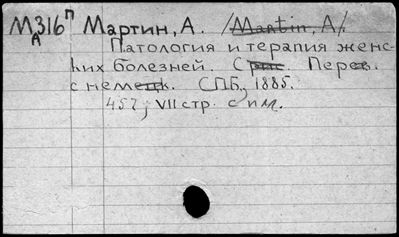 МА316П Мартин, А. /Martin, A/.
Патология и терапия женс-
ких болезней. С рис. Перев.
с немецк. СПБ., 1885.
457, VII стр. с ил.